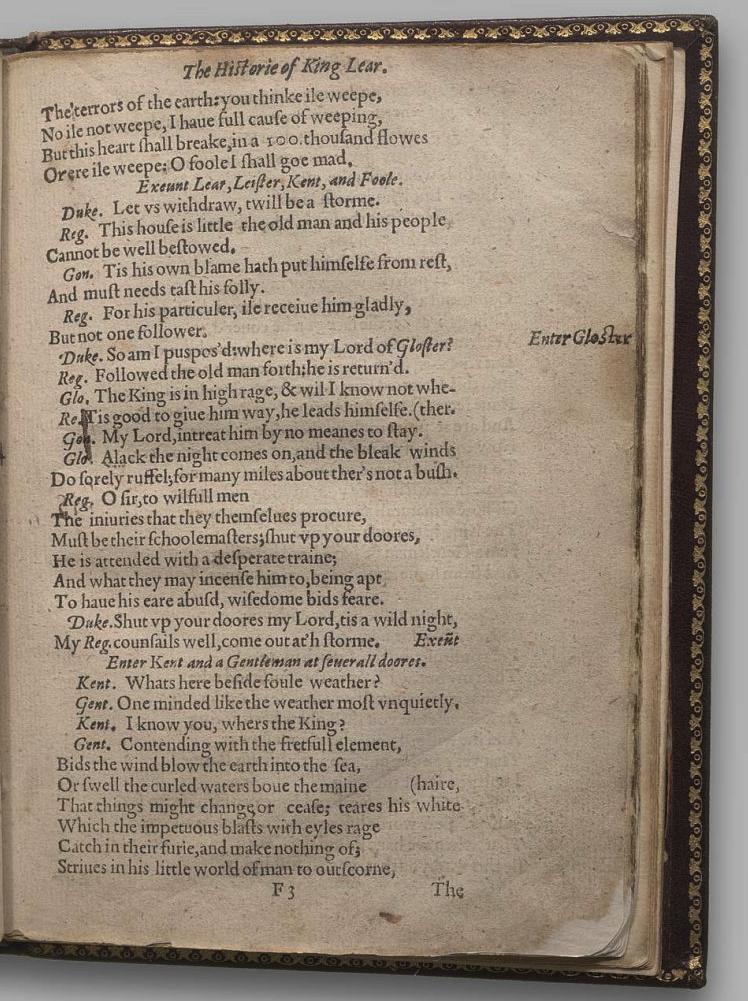 The Historie of King Lear.
The terrors of the earth: you thinke ile weepe,
No ile not weepe, I haue full cauſe of weeping,
But this heart ſhall breake, in a 100. thouſand flowes
Or ere ile weepe: O foole I ſhall goe mad.
Exeunt Lear, Leiſter, Kent, and Foole.
Duke. Let vs withdraw, twill be a ſtorme.
Reg. This houſe is little the old man and his people,
Cannot be well beſtowed.
Gon. Tis his own blame hath put himſelfe from reſt,
And muſt needs taſt his folly.
Reg. For his particuler, ile receiue him gladly,
But not one follower.
Duke. So am I puspos'd: where is my Lord of Gloſter? Enter Gloster
Reg. Followed the old man forth: he is return'd.
Glo. The King is in high rage, & wil I know not whe-
Re. Tis good to giue him way, he leads himſelfe. (ther.
Gon. My Lord, intreat him by no meanes to ſtay.
Glo. Alack the night comes on, and the bleak winds
Do ſorely ruffel; for many miles about ther's not a buſh.
Reg. O ſir, to wilfull men
The iniuries that they themſelues procure,
Muſt be their ſchoolemaſters; ſhut vp your doores,
He is attended with a deſperate traine;
And what they may incenſe him to, being apt
To haue his eare abuſd, wiſedome bids feare.
Duke. Shut vp your doores my Lord, tis a wild night,
My Reg. counſails well, come out at'h ſtorme. Exeūt
Enter Kent and a Gentleman at ſeuerall doores.
Kent. Whats here beſide foule weather?
Gent. One minded like the weather moſt vnquietly.
Kent. I know you, whers the King?
Gent. Contending with the fretfull element,
Bids the wind blow the earth into the ſea,
Or ſwell the curled waters boue the maine (haire,
That things might change or ceaſe; teares his white
Which the impetuous blaſts with eyles rage
Catch in their furie, and make nothing of;
Striues in his little world of man to outſcorne,
F 3 The